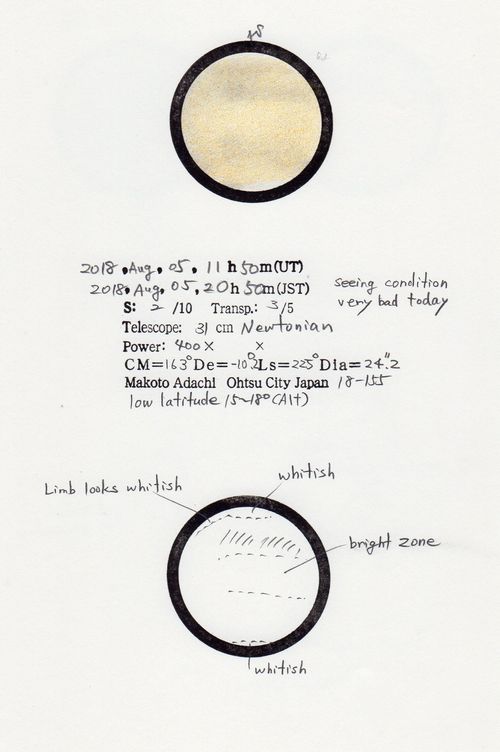 S
2018, Aug, 05, 11 h 50m(UT)
2018, Aug, 05, 20 h 50m(JST)
S: 2 /10 Transp.: 3/5
Telescope: 31 cm Newtonian
Power: 400× ×
CM=163°De=-10.°2Ls=225°Dia=24."2
Makoto Adachi Ohtsu City Japan 18-155
low latitude 15~18°(Alt)
seeing condition
very bad today
whitish
Limb looks whitish
bright zone
whitish